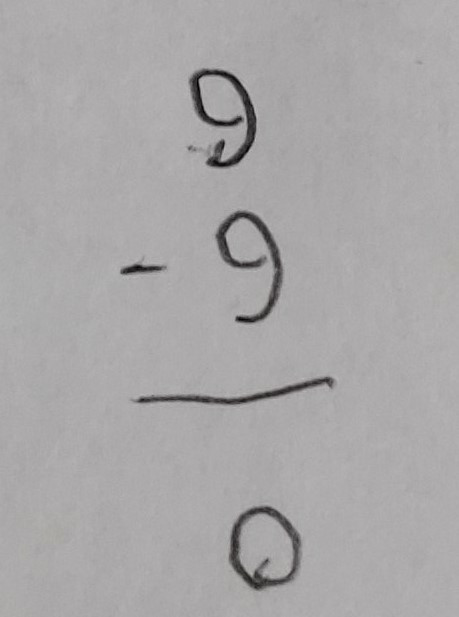 9
- 9
0